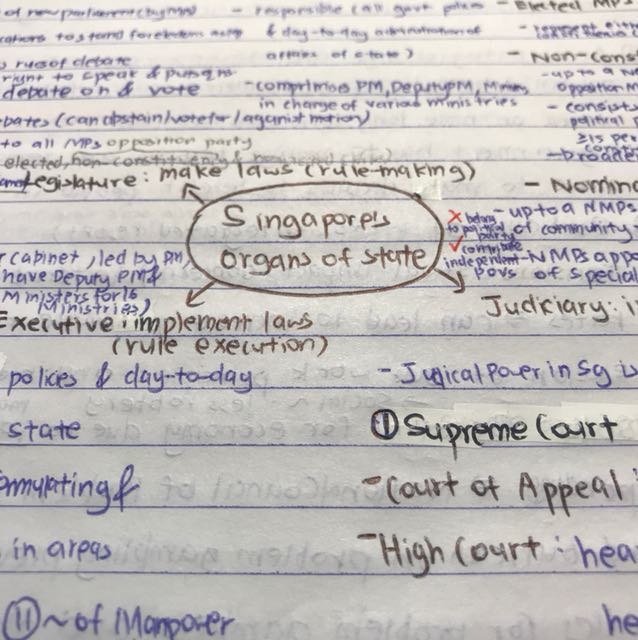 of new parliament (by PM) - responsible (all govt policies - Elected MPs
& day-to-day administration of
affairs of state) - Non-cons
rules of debate
right to speak &
debate on & vote - comprimises PM, Deputy PM, Minis - up to a N
in charge of various ministries opposition M
bates (can abstain/vote for/against motion) - consists
political
to all MPs opposition party
elected, non-constituency &
Legislature: make laws (rule-making) - Nomin
Singapore's
organs of state
✗ belong - up to a NMPs
to political of community
party
✓ complete
independent - NMPs appo
povs of special
cabinet, led by PM
have Deputy PM &
Ministers for 16
Ministries)
Executive: implement laws
(rule execution)
Judiciary: i
polices & day-to-day - Judical Power in Sg is
state ① Supreme Court
amulating & - Court of Appeal
in areas - High Court : hea
⑪ ~ of Manpower he